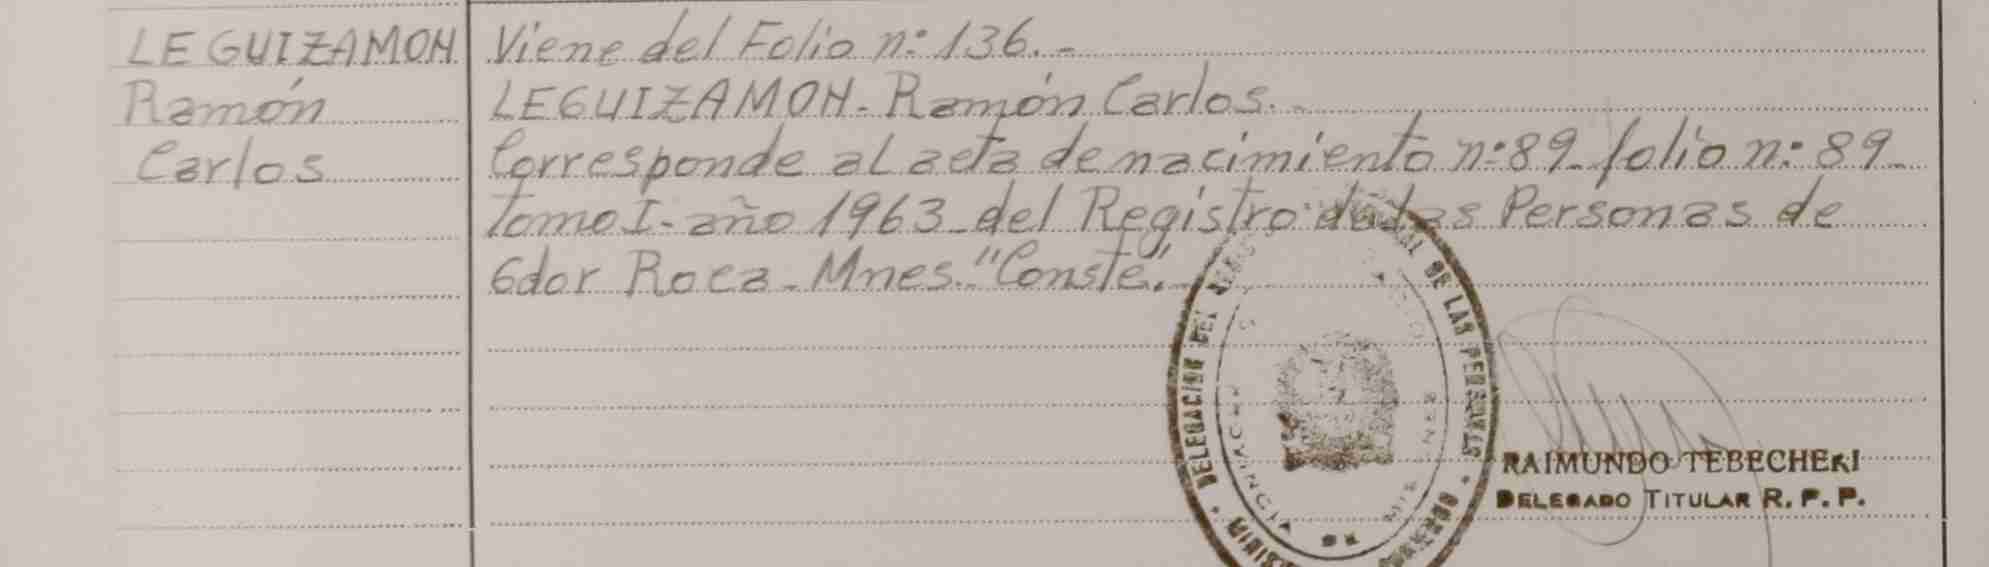 LEGUIZAMON
Ramón
Carlos
Viene del Folio n° 136.-
LEGUIZAMON- Ramón Carlos.-
Corresponde al acta de nacimiento n° 89- folio n° 89-
tomo I- año 1963- del Registro de las Personas de
Gdor Roca- Mnes. "Conste".-
DELEGACION DEL DE LAS PERSONAS
PROVINCIA DE
RAIMUNDO TEBECHERI
DELEGADO TITULAR R. P. P.